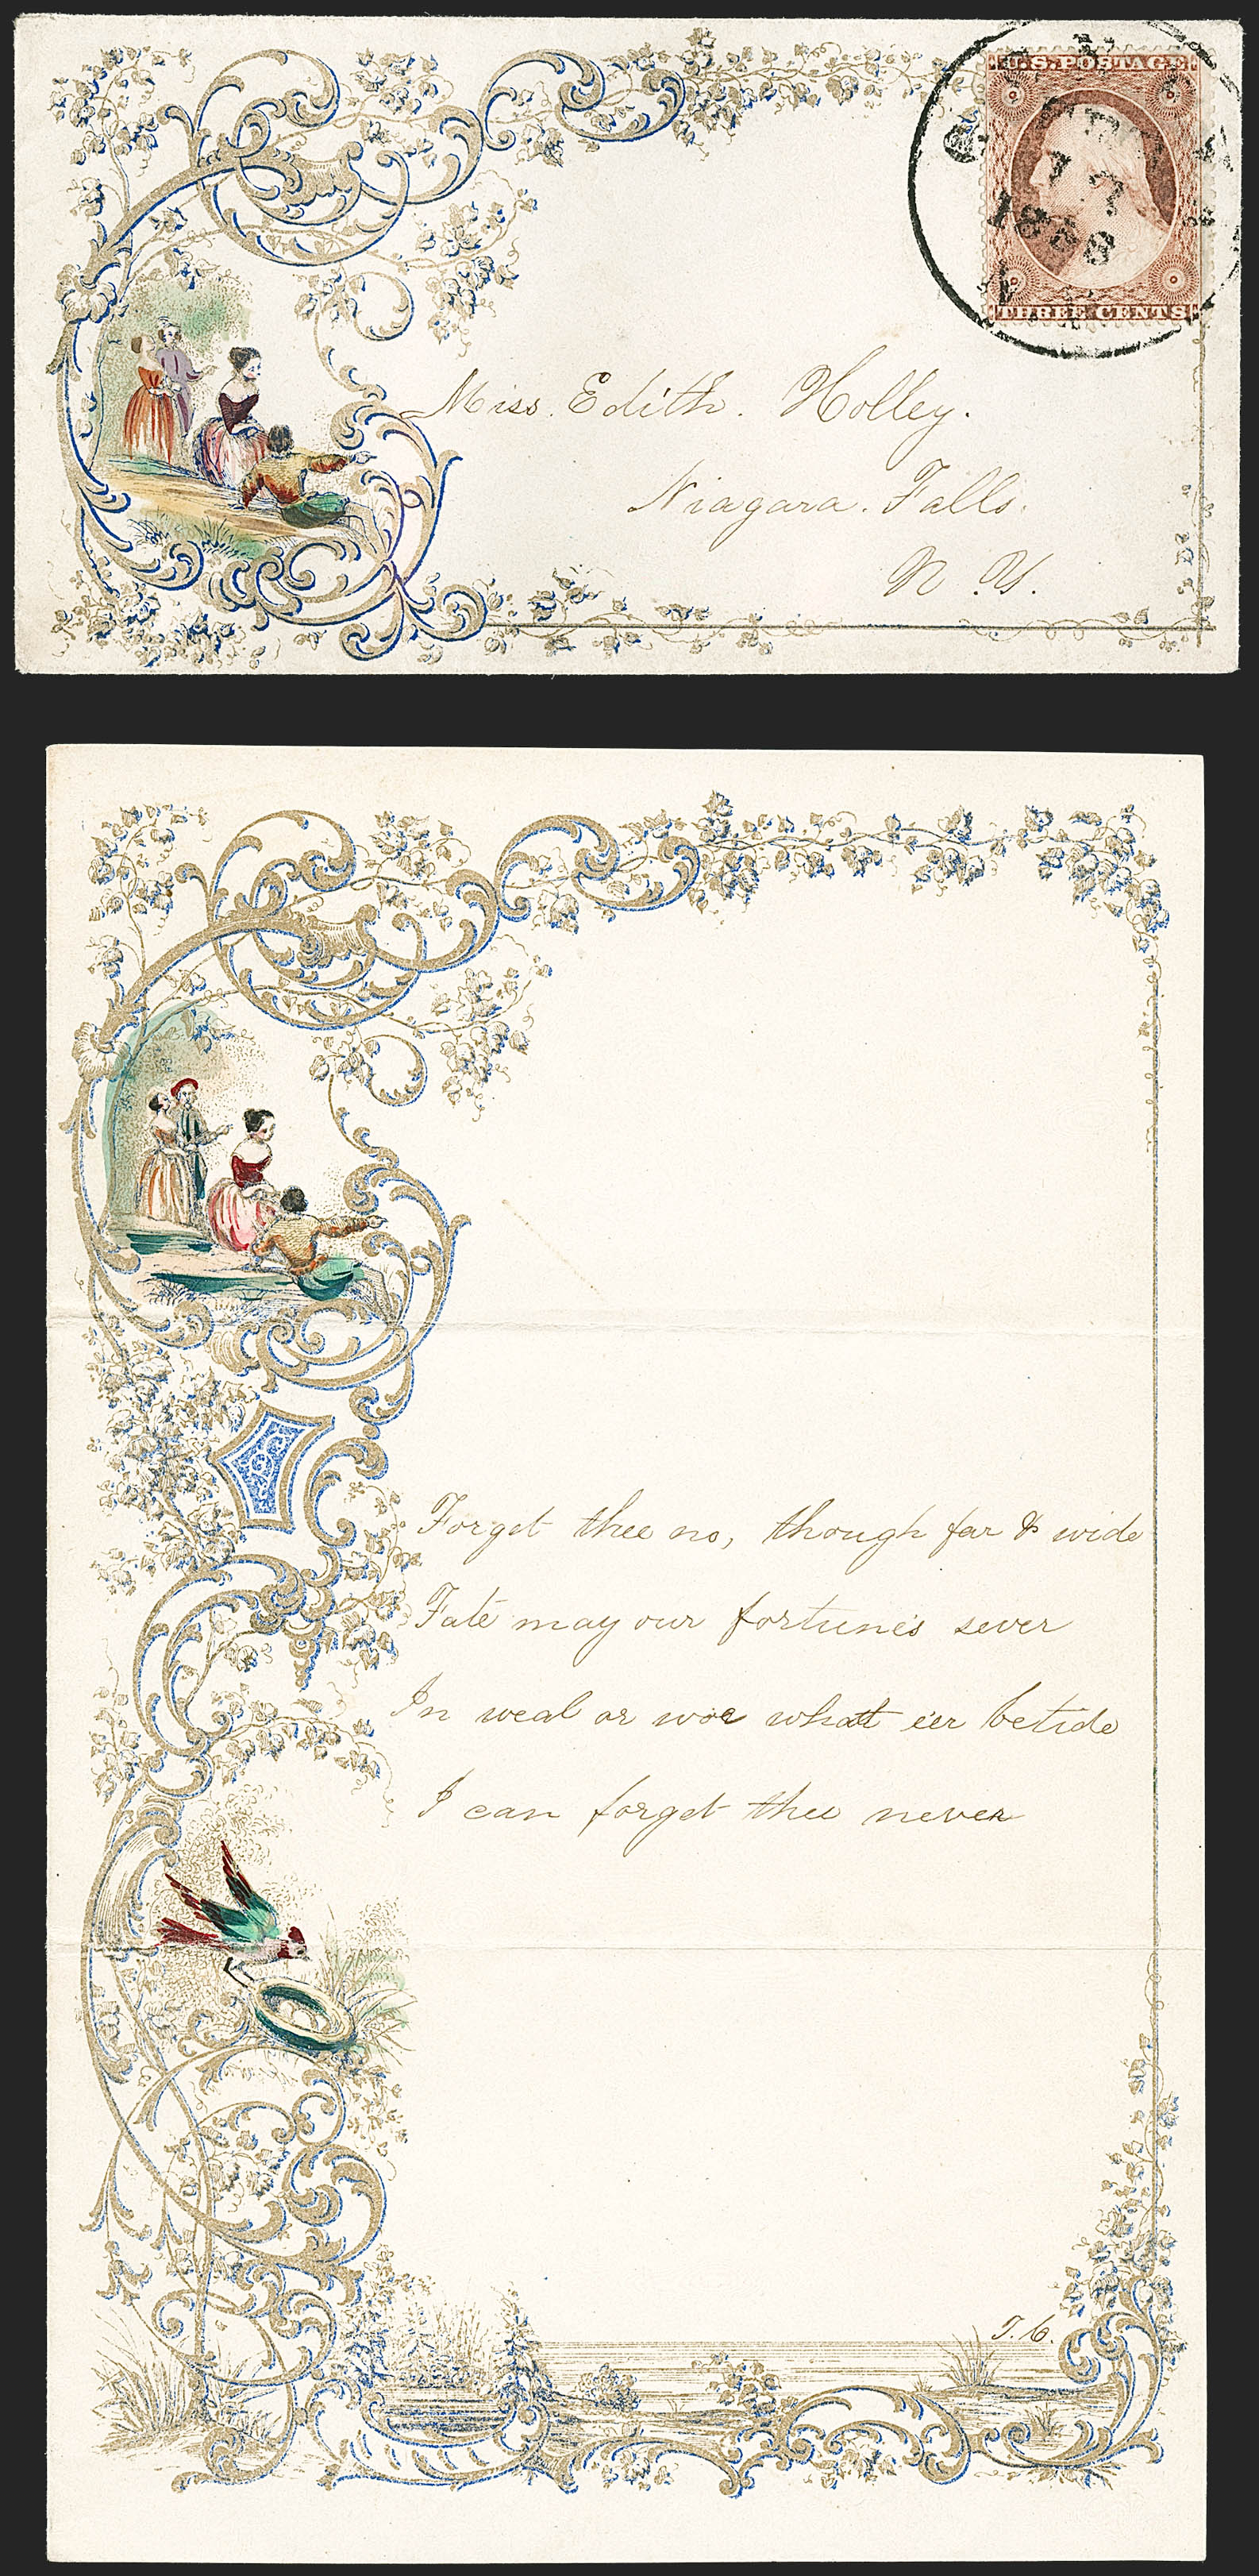 U.S. POSTAGE
17
1858
THREE CENTS
Miss. Edith. Holley.
Niagara. Falls.
N. Y.
Forget thee no, though far & wide
Fate may our fortunes sever
In weal or woe what e'er betide
I can forget thee never